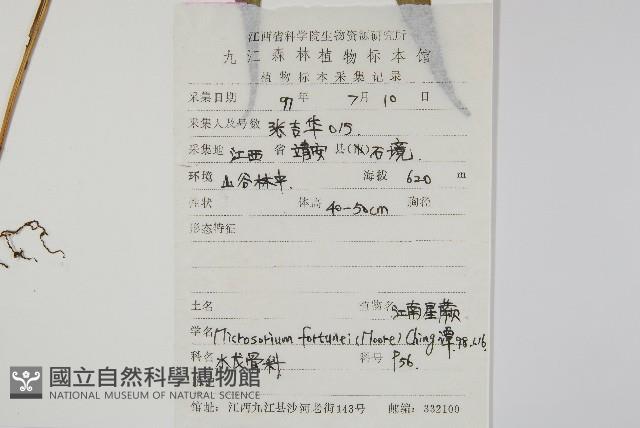 江西省科学院生物资源研究所
九江森林植物标本馆
植物标本采集记录
采集日期 97 年 7 月 10 日
采集人及号数 张吉华 015
采集地 江西 省 靖安 县(市) 石境
环境 山谷林中 海拔 620 m
性状 体高 40-50cm 胸径
形态特征
土名 植物名 江南星蕨
学名 Microsorium fortunei (Moore) Ching 谭 98.6.16
科名 水龙骨科 科号 P56
國立自然科學博物館
NATIONAL MUSEUM OF NATURAL SCIENCE
馆址: 江西九江县沙河老街143号 邮编: 332100